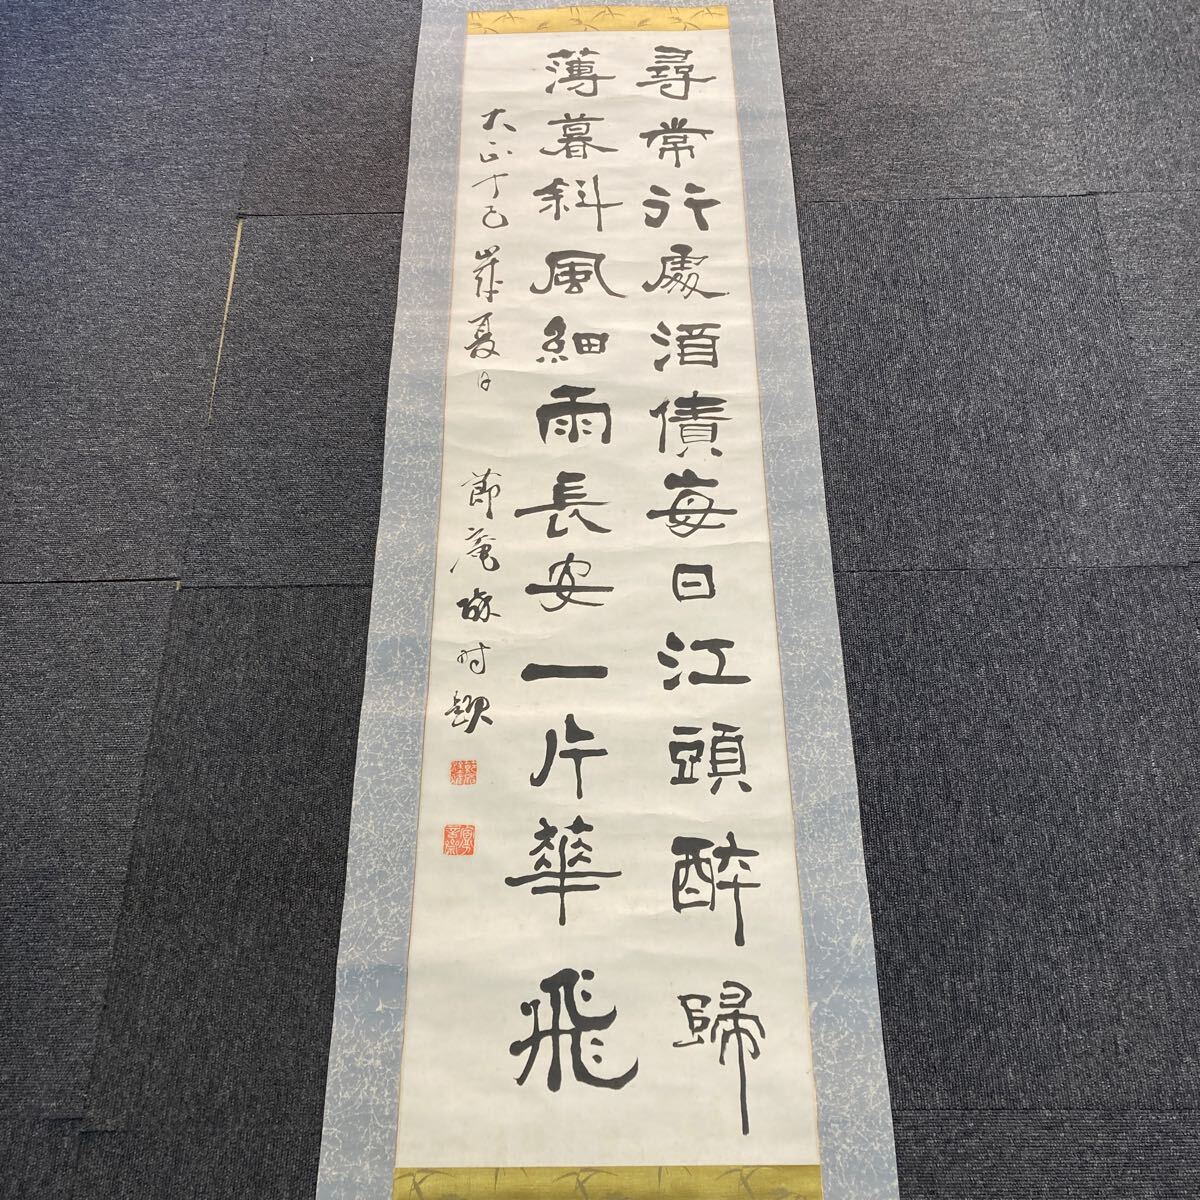 尋常行處酒債每日江頭醉歸
薄暮斜風細雨長安一片華飛
大正丁巳歲夏日 節庵 時題